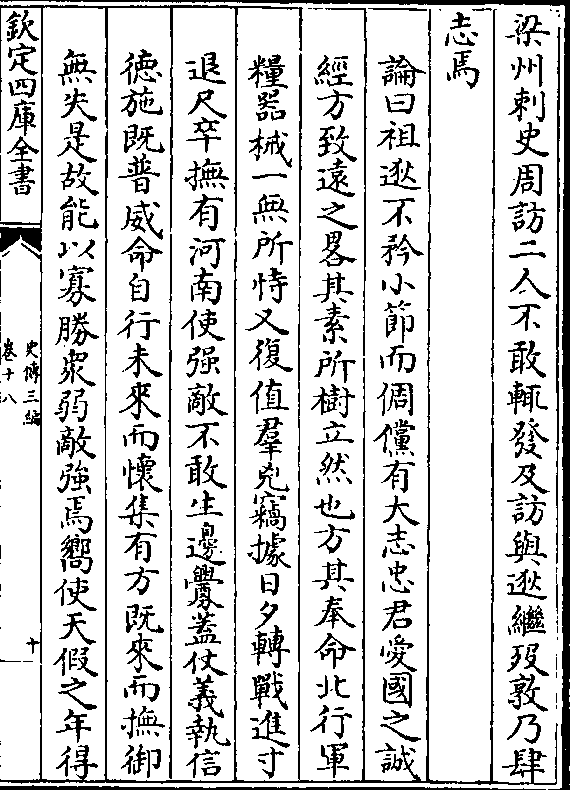 梁州刺史周訪二人不敢輒發及訪與逖繼歿敦乃肆
志焉
論曰祖逖不矜小節而倜儻有大志忠君愛國之誠
經方致遠之畧其素所樹立然也方其奉命北行軍
糧器械一無所恃又復值羣兇竊據日夕轉戰進寸
退尺卒撫有河南使强敵不敢生邊釁蓋仗義執信
徳施既普威命自行未來而懷集有方既來而撫御
無失是故能以寡勝衆弱敵強焉嚮使天假之年得
欽定四庫全書
史傳三編
卷十八
十